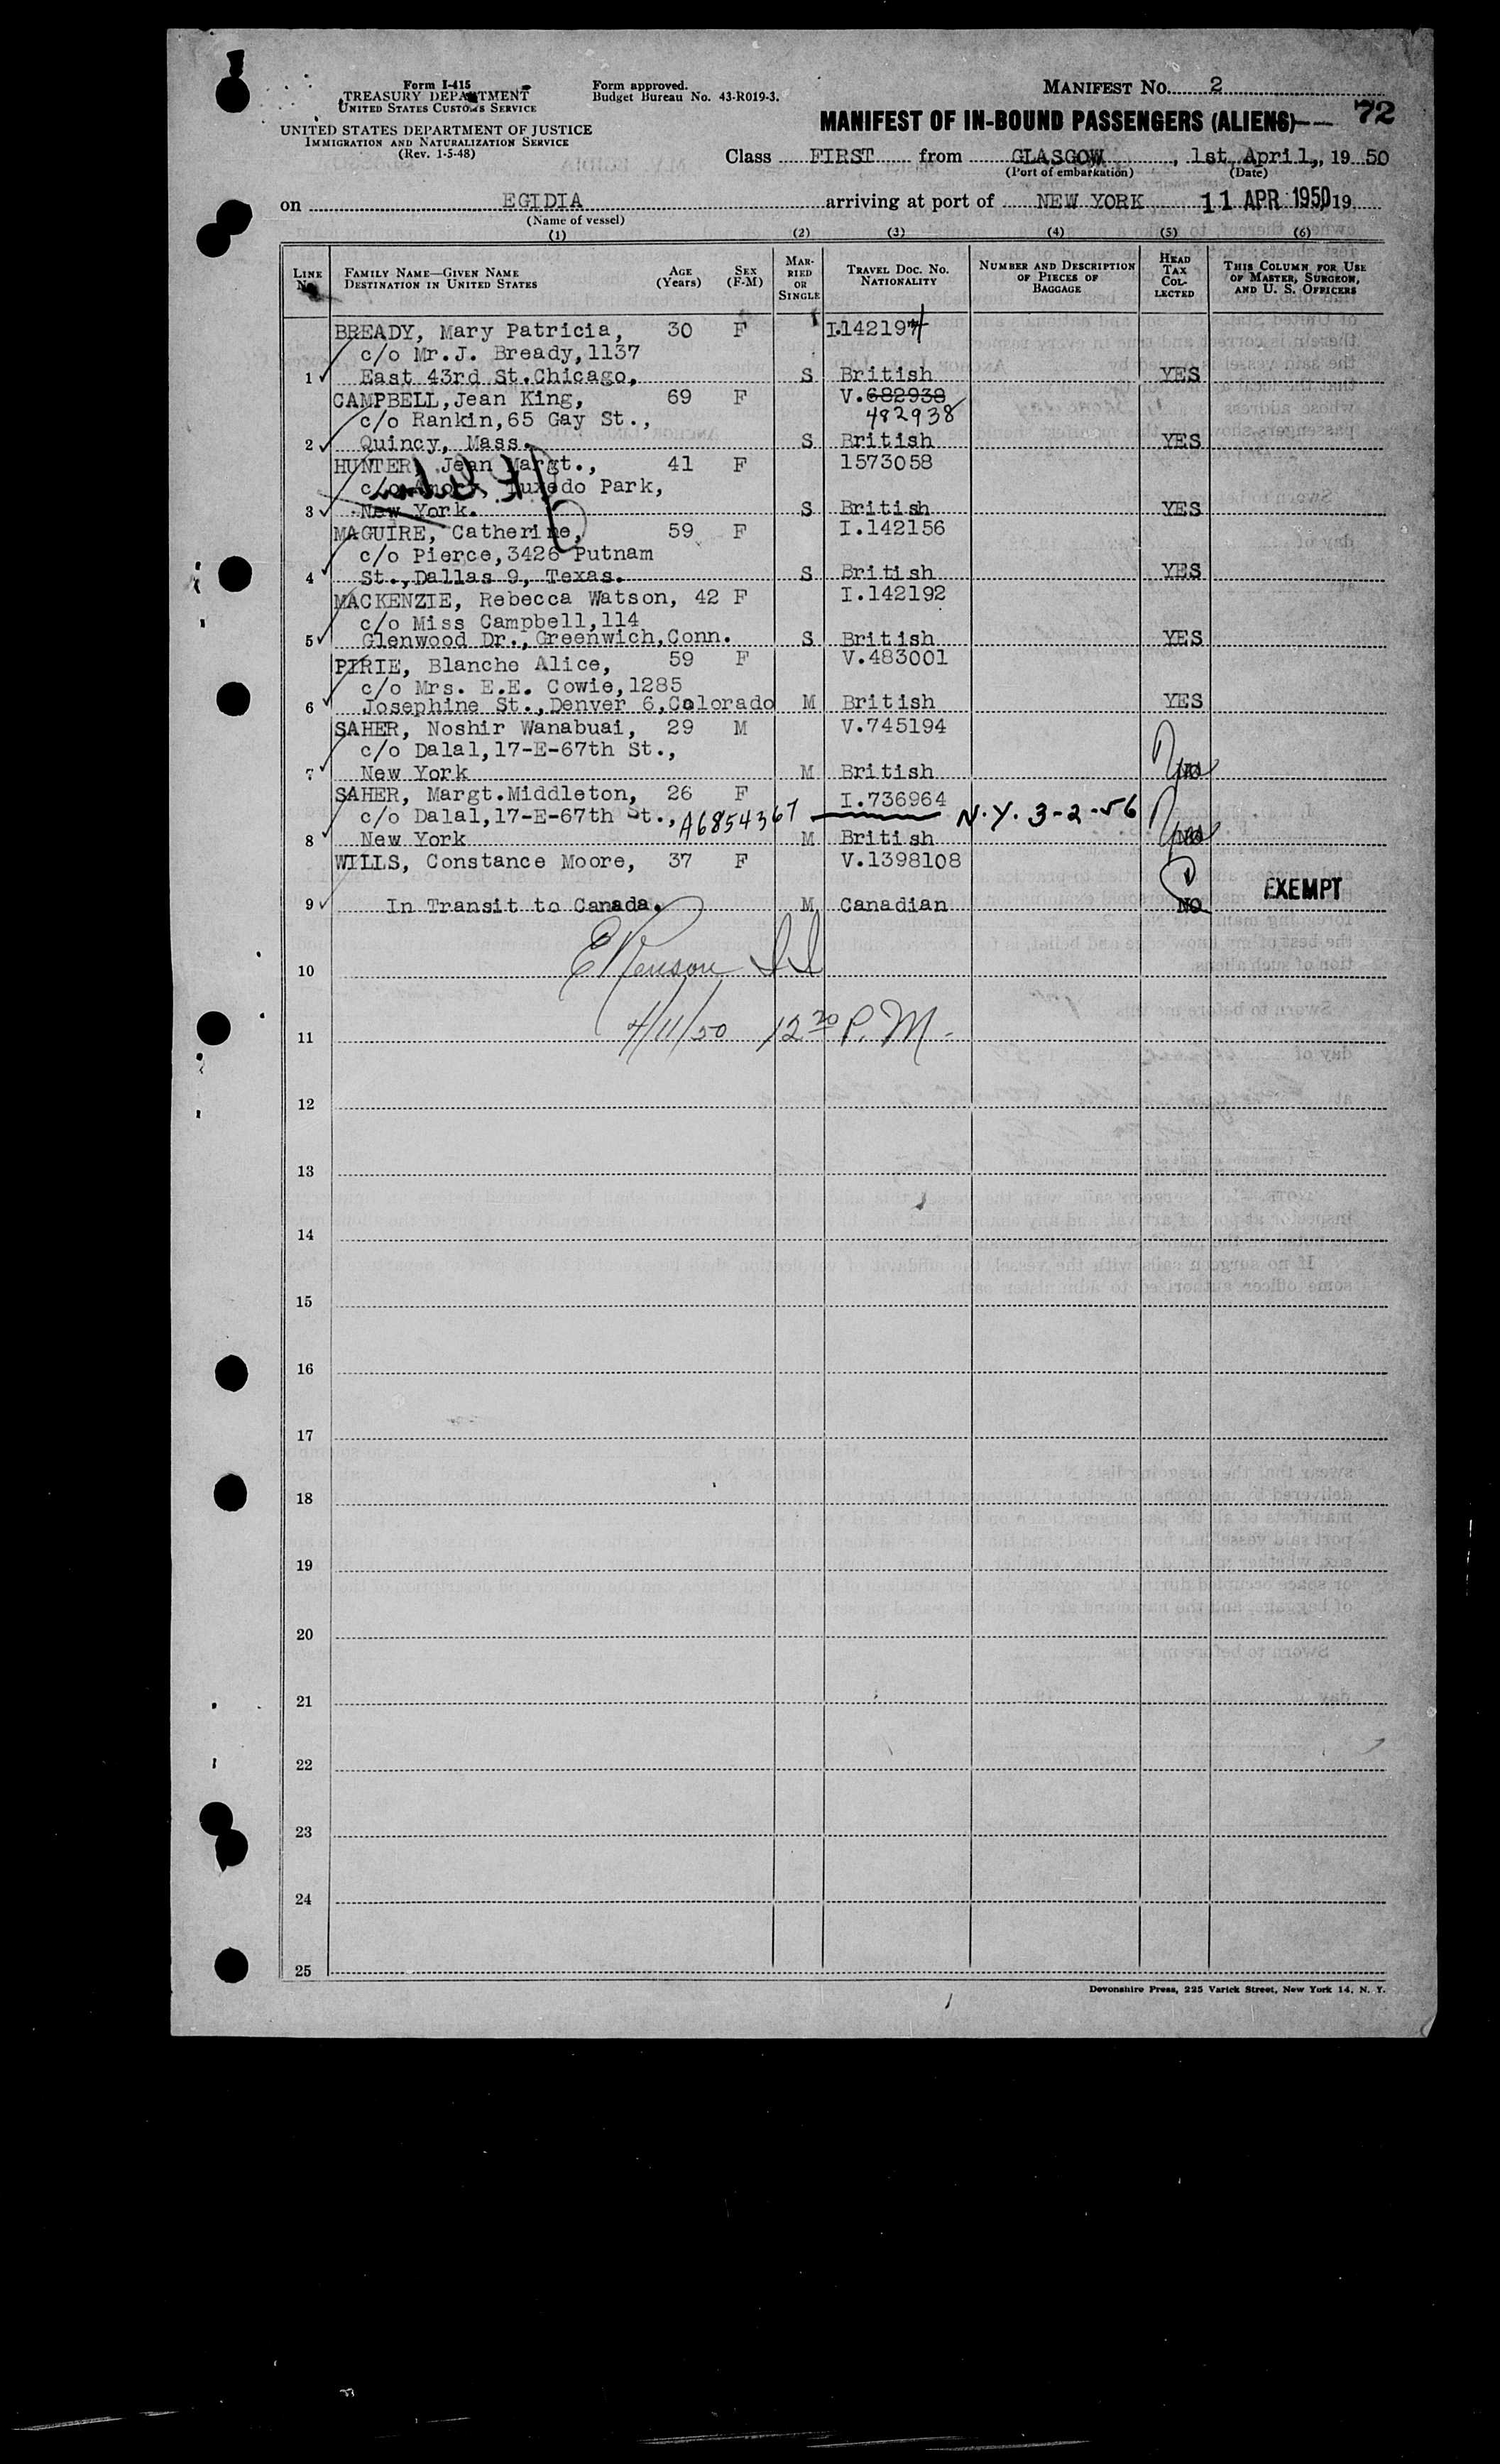 Form I-415
TREASURY DEPARTMENT
UNITED STATES CUSTOMS SERVICE
UNITED STATES DEPARTMENT OF JUSTICE
IMMIGRATION AND NATURALIZATION SERVICE
(Rev. 1-5-48)
Form approved.
Budget Bureau No. 43-R019-3.
MANIFEST NO. 2
MANIFEST OF IN-BOUND PASSENGERS (ALIENS) 72
Class FIRST from GLASGOW, 1st April, 19 50
(Port of embarkation) (Date)
on EGIDIA arriving at port of NEW YORK 11 APR 1950 19
(Name of vessel)
(1) (2) (3) (4) (5) (6)
LINE No. FAMILY NAME—GIVEN NAME DESTINATION IN UNITED STATES AGE (Years) SEX (F-M) MARRIED OR SINGLE TRAVEL DOC. NO. NATIONALITY NUMBER AND DESCRIPTION OF PIECES OF BAGGAGE HEAD TAX COLLECTED THIS COLUMN FOR USE OF MASTER, SURGEON, AND U. S. OFFICERS
BREADY, Mary Patricia, 30 F I.142194
c/o Mr.J. Bready,1137
1 East 43rd St.Chicago, S British YES
CAMPBELL,Jean King, 69 F V.682938
c/o Rankin,65 Gay St., 482938
2 Quincy, Mass. S British YES
HUNTER, Jean Margt., 41 F 1573058
c/o Tuxedo Park,
3 New York. S British YES
MAGUIRE, Catherine, 59 F I.142156
c/o Pierce,3426 Putnam
4 St.,Dallas 9, Texas. S British YES
MACKENZIE, Rebecca Watson, 42 F I.142192
c/o Miss Campbell,114
5 Glenwood Dr.,Greenwich,Conn. S British YES
PIRIE, Blanche Alice, 59 F V.483001
c/o Mrs. E.E. Cowie,1285
6 Josephine St.,Denver 6,Colorado M British YES
SAHER, Noshir Wanabuai, 29 M V.745194
c/o Dalal,17-E-67th St.,
7 New York M British Yes
SAHER, Margt.Middleton, 26 F I.736964
c/o Dalal,17-E-67th St., A6854367 N.Y. 3-2-56
8 New York M British Yes
WILLS, Constance Moore, 37 F V.1398108
EXEMPT
9 In Transit to Canada. M Canadian NO
10
4/11/50 12 20 P.M.
11
12
13
14
15
16
17
18
19
20
21
22
23
24
25
Devonshire Press, 225 Varick Street, New York 14, N. Y.